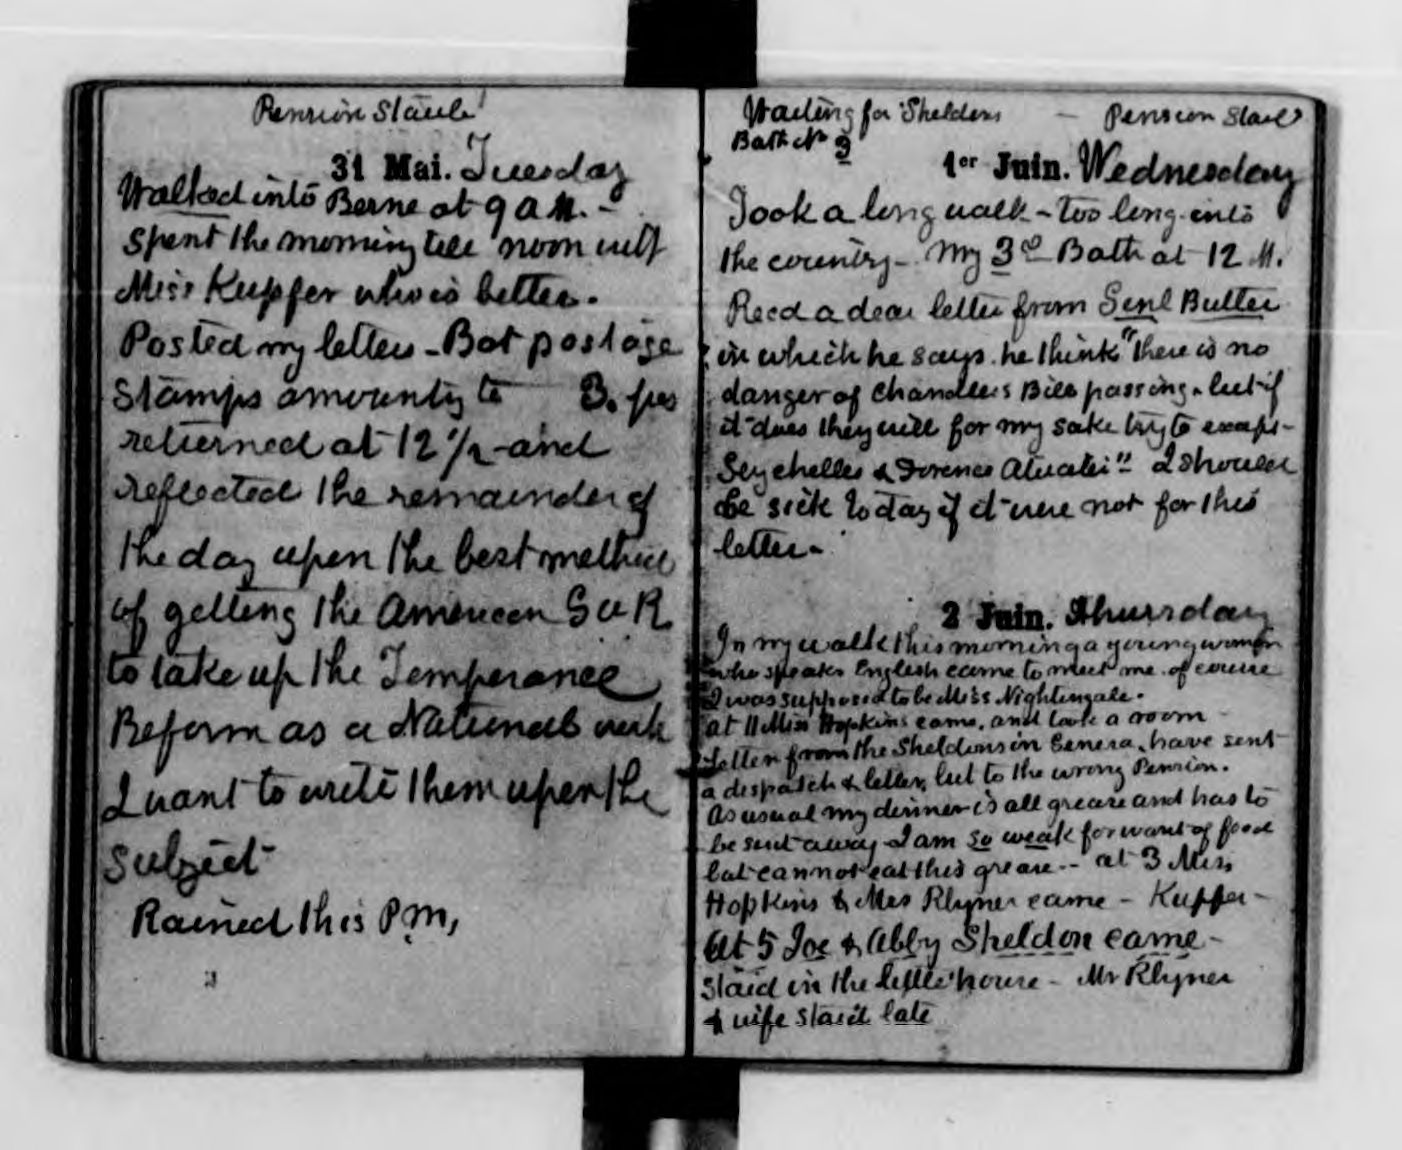 Pension Staub
31 Mai. Tuesday
Walked into Berne at 9 A M. -
spent the morning till noon with
Miss Kupfer who is better.
Posted my letters - Bot postage
stamps amounting to 3.
returned at 12 1/2 - and
reflected the remainder of
the day upon the best method
of getting the American G A R
to take up the Temperance
Reform as a National work
I want to write them upon the
subject -
Rained this P.M,
Waiting for Sheldons - Pension Staub
Bath No 3
1er Juin. Wednesday
Took a long walk - too long - into
the country - My 3d Bath at 12 M.
Recd a dear letter from Genl Butler
in which he says he thinks "there is no
danger of Chandlers Bill passing - but if
it does they will for my sake try to except
I should
be sick today if it were not for this
letter -
2 Juin. Thursday
In my walk this morning a young woman
who speaks English came to meet me. of course
I was supposed to be Miss Nightingale.
at 11 Miss Hopkins came, and took a room
Letter from the Sheldons in Geneva, have sent
a dispatch & letter, but to the wrong Pension.
As usual my dinner is all grease and has to
be sent away - I am so weak for want of food
but cannot eat this grease -- at 3 Miss
Hopkins & Mrs Rhyner came - Kupfer -
At 5 Joe & Abby Sheldon came -
staid in the little house - Mr Rhyner
& wife staid late